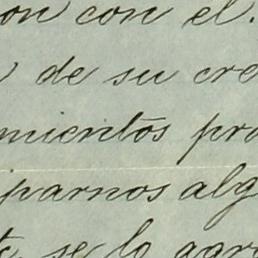 on con el.
de su cre
mientos pro
parnos alg
se lo agra